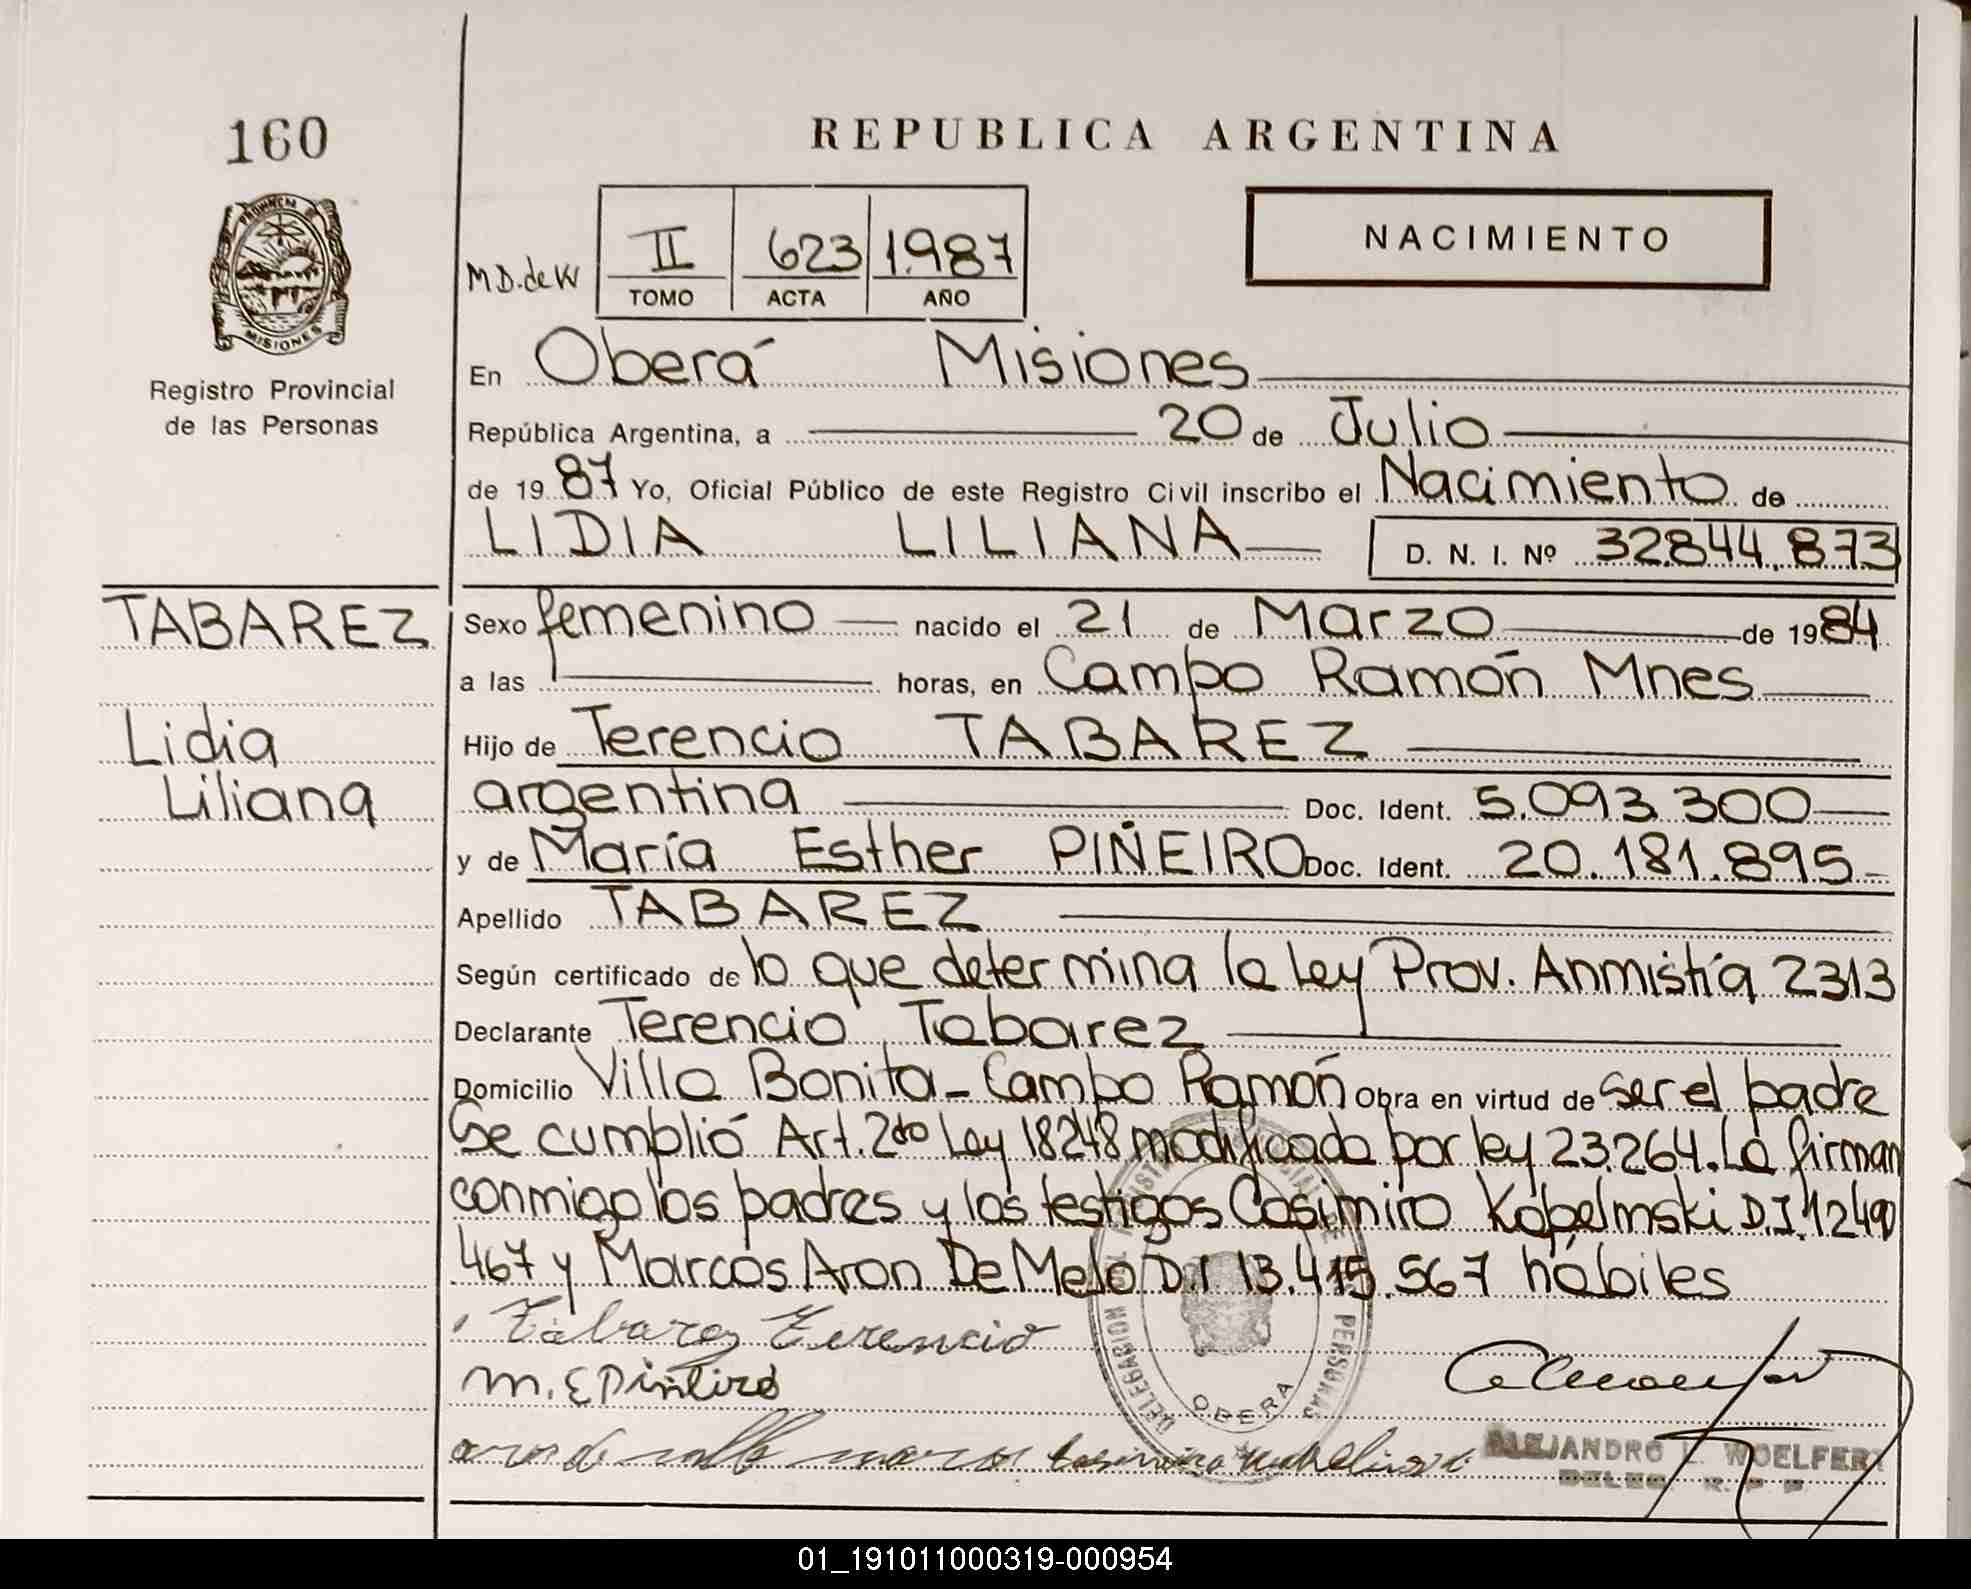 160
REPUBLICA ARGENTINA
PROVINCIA
MISIONES
Registro Provincial
de las Personas
M.D. de W
II 623 1.987
TOMO ACTA AÑO
NACIMIENTO
En Oberá Misiones
República Argentina, a 20 de Julio
de 19 87 Yo, Oficial Público de este Registro Civil inscribo el Nacimiento de
LIDIA LILIANA D. N. I. Nº 32.844.873
TABAREZ
Lidia
Liliana
Sexo femenino nacido el 21 de Marzo de 1984
a las horas, en Campo Ramón Mnes
Hijo de Terencio TABAREZ
argentina Doc. Ident. 5.093.300
y de María Esther PIÑEIRO Doc. Ident. 20.181.895-
Apellido TABAREZ
Según certificado de lo que determina la Ley Prov. Anmistía 2313
Declarante Terencio Tabarez
Domicilio Villa Bonita - Campo Ramón Obra en virtud de ser el padre
Se cumplió Art. 2do Ley 18248 modificada por ley 23.264. La firman
conmigo los padres y los testigos Casimiro Kobelmski D.I. 12490
467 y Marcos Aron De Melo D.I 13.415.567 hábiles
Tabarez Terencio
M. E Piñeiro
DELEGACION
PERSONAS
OBERA
ALEJANDRO L. WOELFERT
DELEG. R. P. P.
01_191011000319-000954